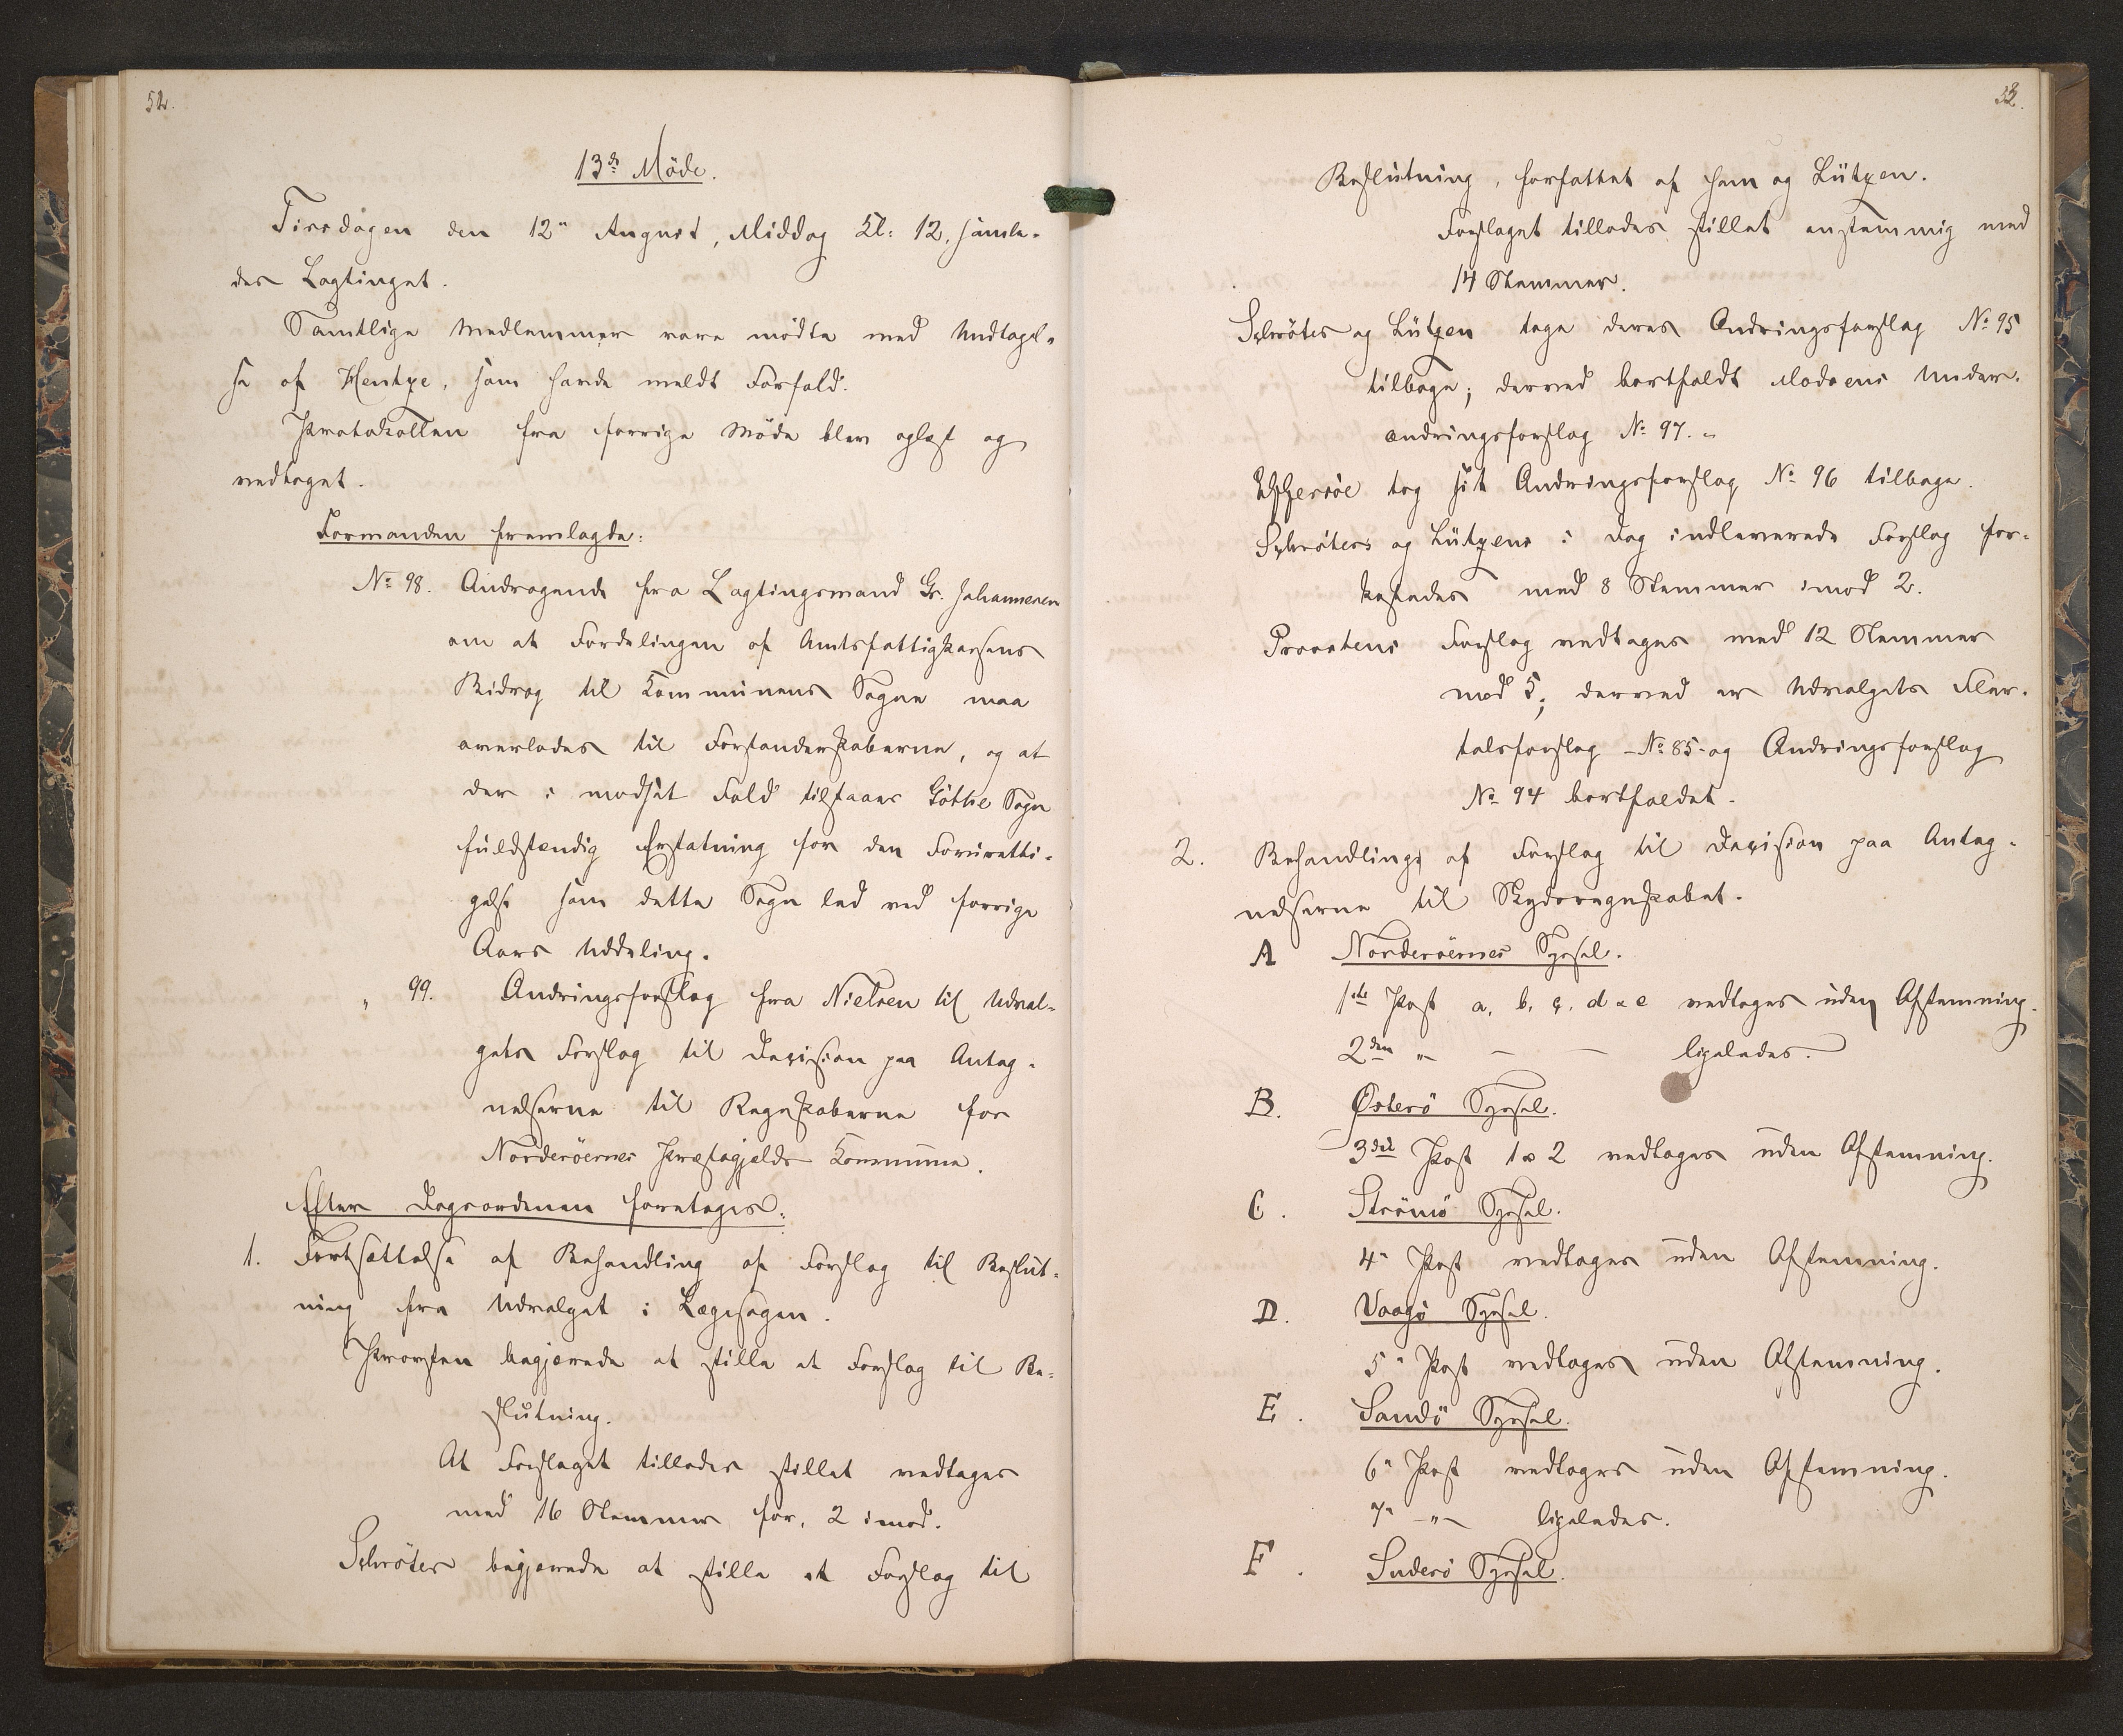 52.
13de Möde.
Tirsdagen den 12" August, Middag Kl: 12, samle-
des Lagtinget.
Samtlige Medlemmer vare mödte med Undtagel-
se af Hentze, som havde meldt Forfald.
Protokollen fra forrige Möde blev oplæst og
vedtaget.
Formanden fremlagde:
No 98. Andragende fra Lagtingsmand Gr. Johannesen
om at Fordelingen af Amtsfattigkassens
Bidrag til Kommunens Sogne maa
overlades til Forstanderskaberne, og at
der i modsat Fald tilstaaes Göthe Sogn
fuldstændig Erstatning for den Foruretti-
gelse som dette Sogn led ved forrige
Aars Uddeling.
" 99. Ændringsforslag fra Nielsen til Udval-
gets Forslag til Decision paa Antag-
nelserne til Regnskaberne for
Norderöernes Præstegjelds Kommune.
Efter Dagsordenen foretoges:
1. Fortsættelse af Behandling af Forslag til Beslut-
ning fra Udvalget i Lægesagen.
Provsten begjerede at stille et Forslag til Be-
slutning.
At Forslaget tillades stillet vedtages
med 16 Stemmer for, 2 imod.
Schröter begjerede at stille et Forslag til
53.
Beslutning, forfattet af ham og Lützen.
Forslaget tillades stillet enstemmig med
14 Stemmer.
Schröter og Lützen toge deres Ændringsforslag No 95
tilbage; derved bortfaldt Madsens Under-
ændringsforslag No 97.
Effersöe tog sit Ændringsforslag No 96 tilbage.
Schröters og Lützens i Dag indleverede Forslag for-
kastedes med 8 Stemmer imod 2.
Provstens Forslag vedtages med 12 Stemmer
mod 5; derved er Udvalgets Fler-
talsforslag - No 85 - og Ændringsforslag
No 94 bortfaldet.
2. Behandling af Forslag til Decision paa Antag-
nelserne til Skydsregnskabet.
A Norderöernes Syssel.
1ste Post a, b, c, d & e vedtages uden Afstemning.
2den " — — ligeledes.
B. Österö Syssel.
3die Post 1 & 2 vedtages uden Afstemning.
C. Strömö Syssel.
4" Post vedtages uden Afstemning.
D. Vaagö Syssel.
5" Post vedtages uden Afstemning.
E. Sandö Syssel.
6" Post vedtages uden Afstemning.
7" -"- ligeledes.
F. Suderö Syssel.